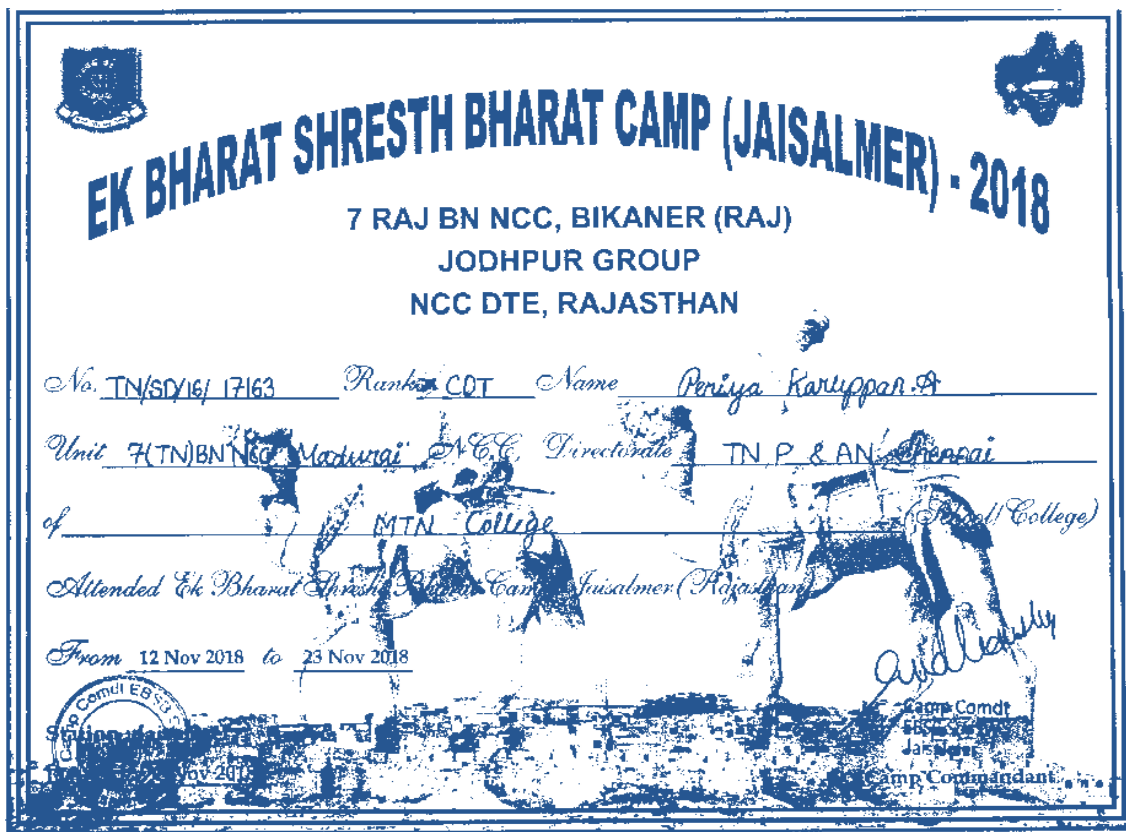 EK BHARAT SHRESTH BHARAT CAMP (JAISALMER) - 2018
7 RAJ BN NCC, BIKANER (RAJ)
JODHPUR GROUP
NCC DTE, RAJASTHAN
No. TN/SD/16/ 17163 Rank CDT Name Periya Karuppan.A
Unit 7(TN)BN NCC Madurai N.C.C. Directorate TN P & AN Chennai
of MTN College (School/College)
Attended Ek Bharat Shresth Bharat Camp Jaisalmer (Rajasthan)
From 12 Nov 2018 to 23 Nov 2018
Camp Comdt EBSB
Station
Nov 2018
Camp Comdt
Jaisalmer
Camp Commandant